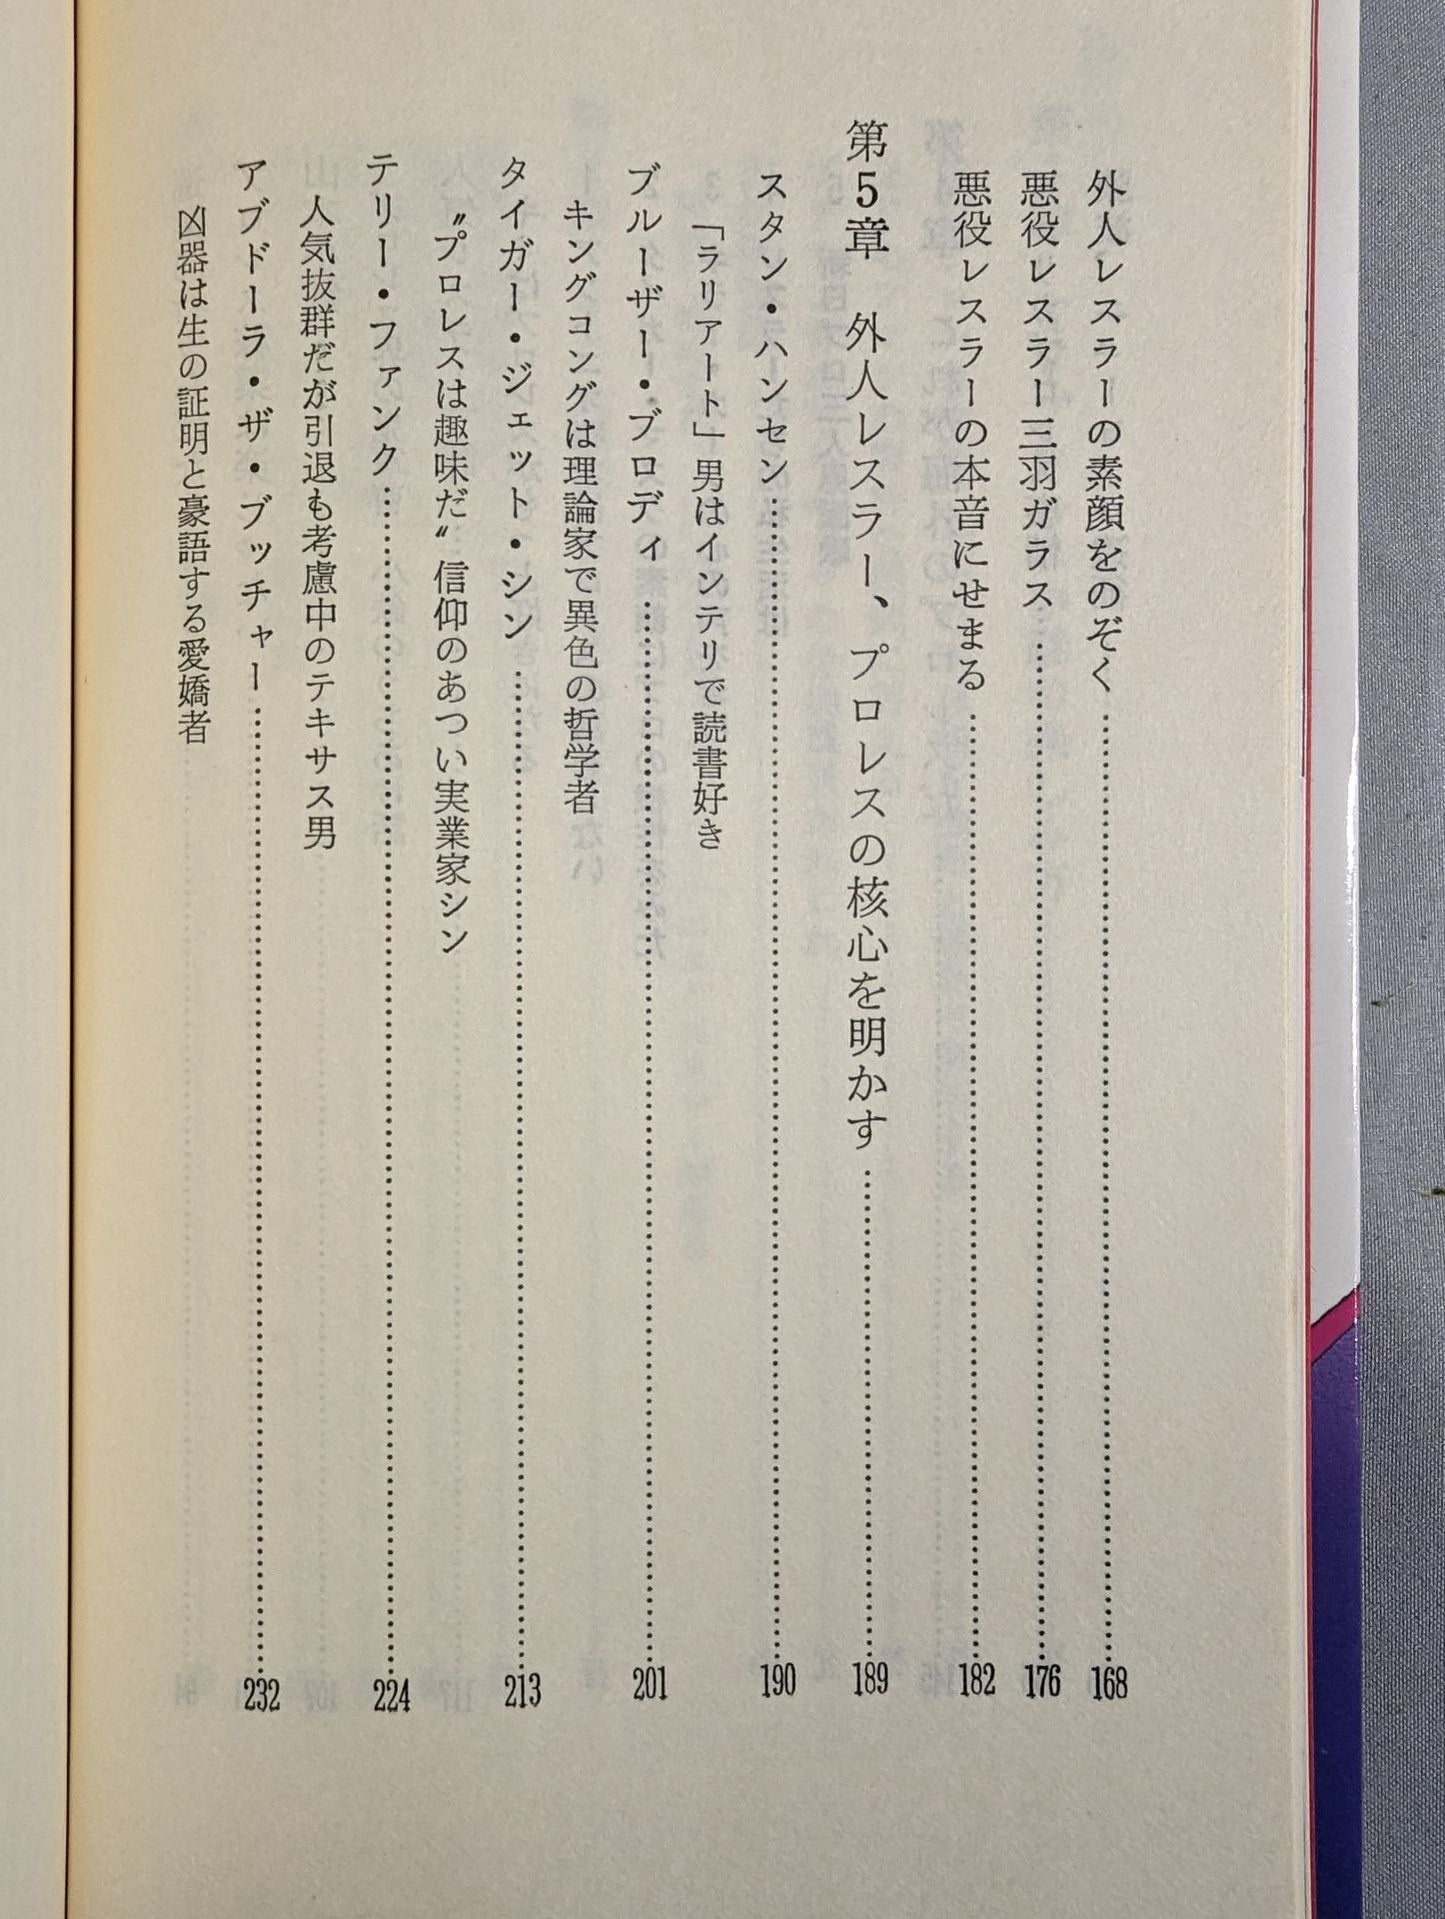 外人レスラーの素顔をのぞく……168
悪役レスラー三羽ガラス……176
悪役レスラーの本音にせまる……182
第5章　外人レスラー、プロレスの核心を明かす……189
スタン・ハンセン……190
「ラリアート」男はインテリで読書好き
ブルーザー・ブロディ……201
キングコングは理論家で異色の哲学者
タイガー・ジェット・シン……213
〝プロレスは趣味だ〟信仰のあつい実業家シン
テリー・ファンク……224
人気抜群だが引退も考慮中のテキサス男
アブドーラ・ザ・ブッチャー……232
凶器は生の証明と豪語する愛嬌者